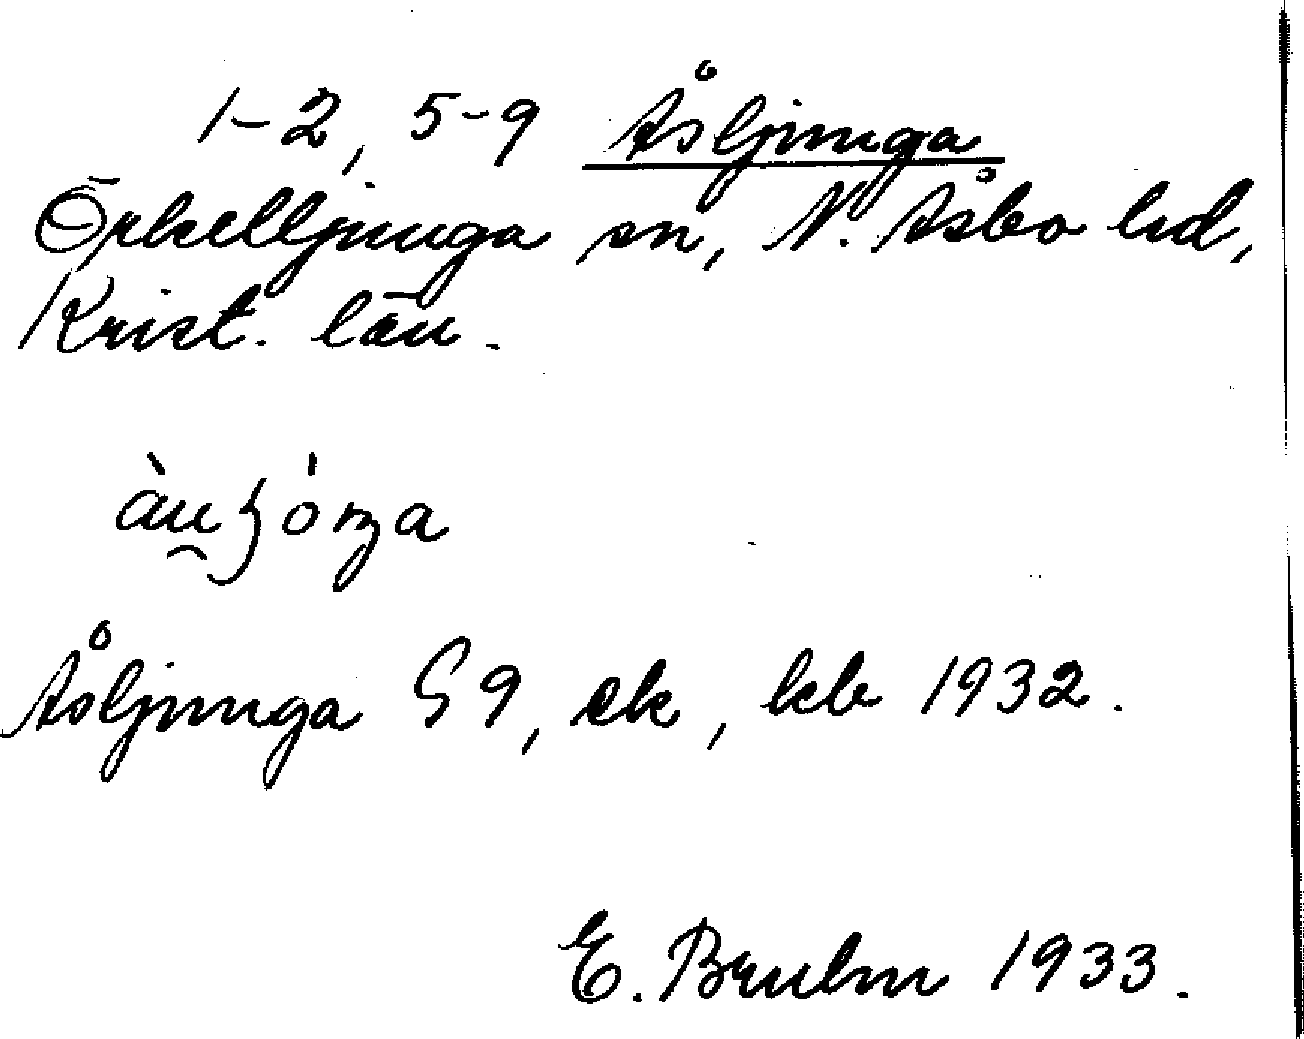 1-2, 5-9 Åsljunga
Örkelljunga sn, N. Åsbo hd,
Krist. län.
Åsljunga S 9, ek, kb 1932.
E. Bruhn 1933.